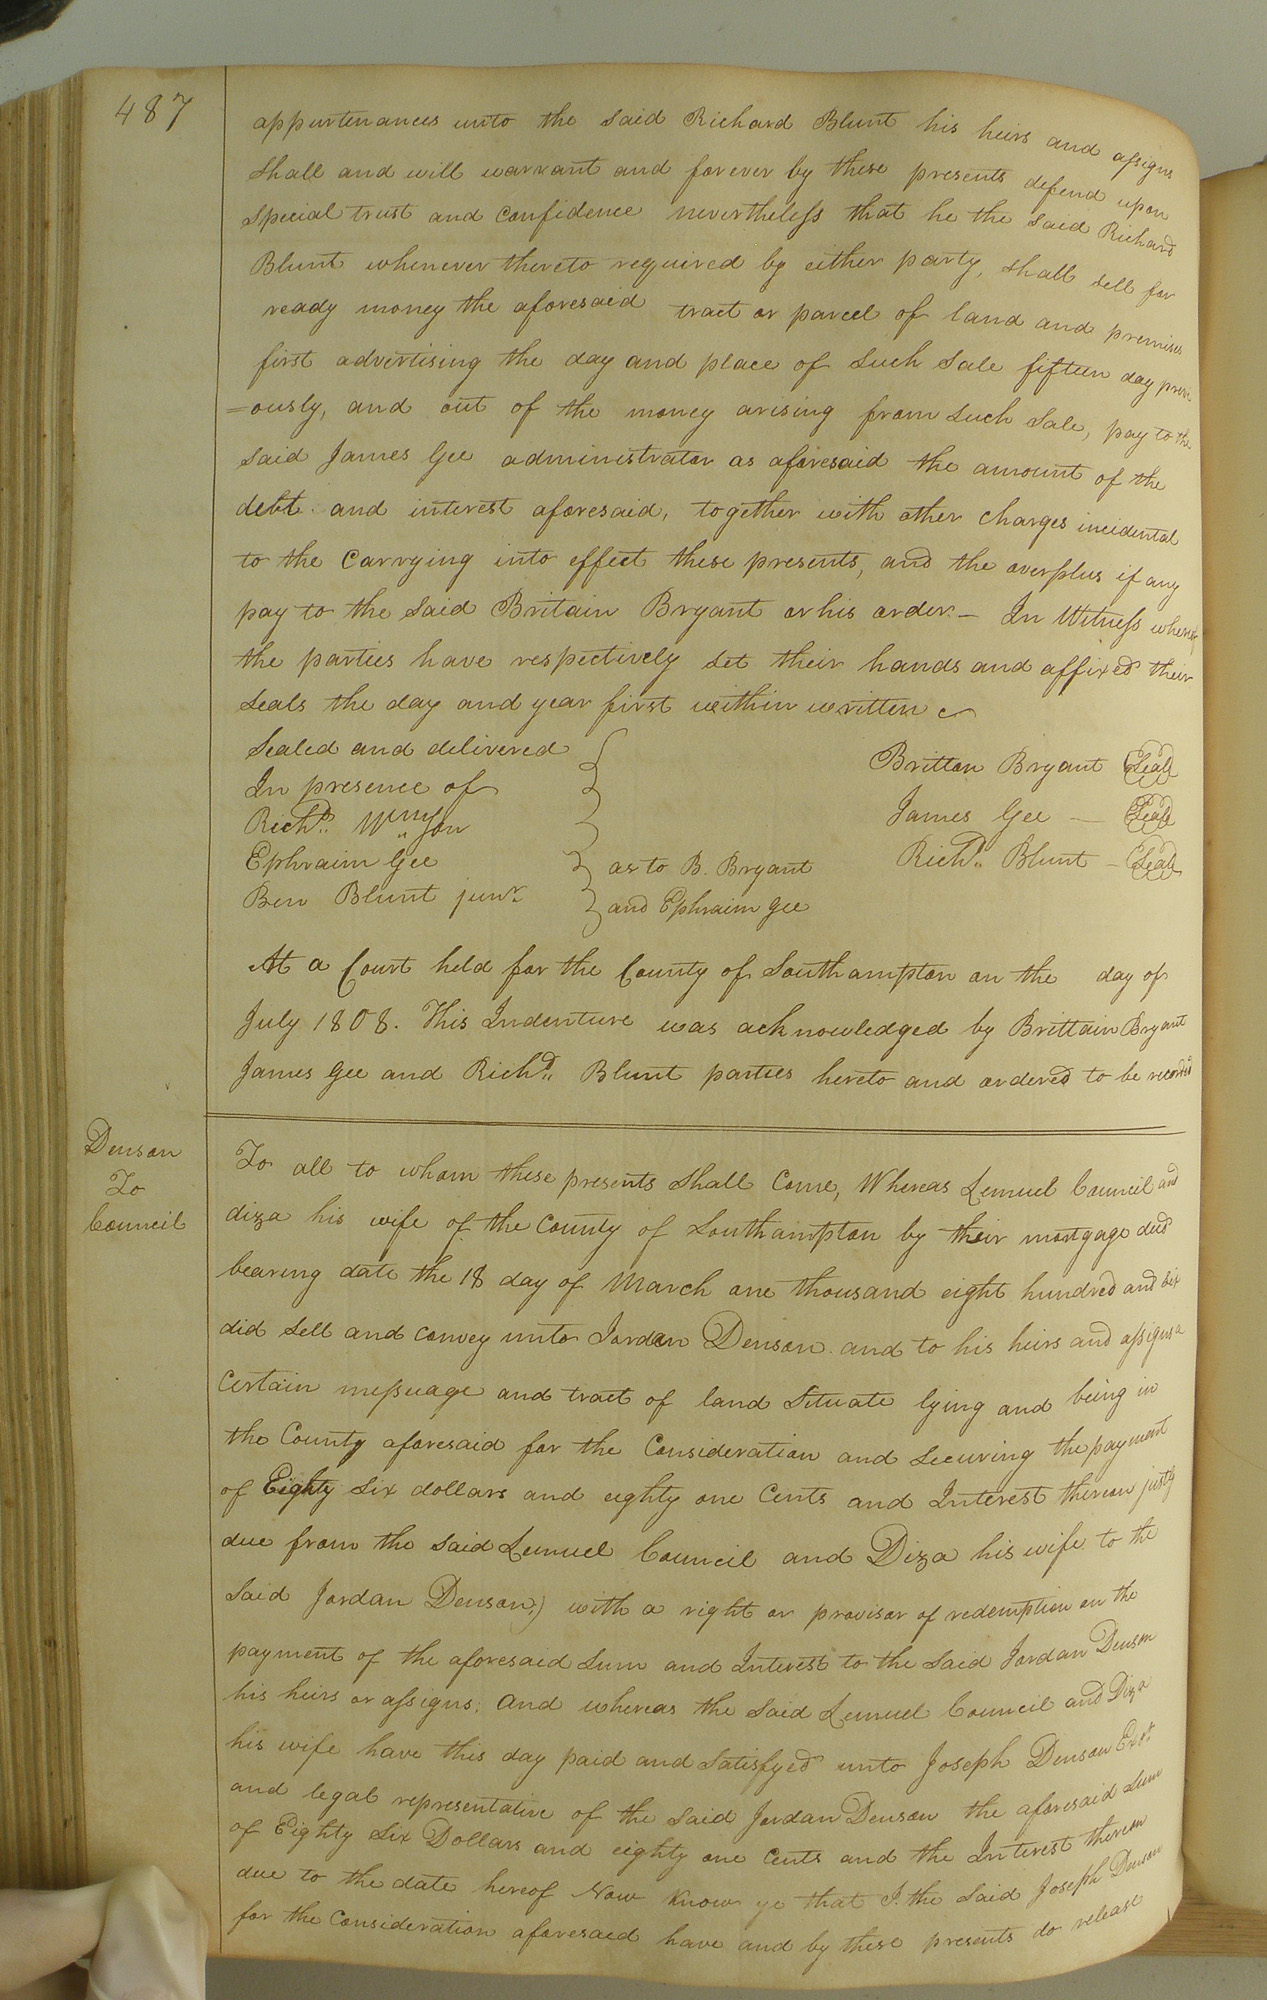 487
appurtenances unto the said Richard Blunt his heirs and assigns
shall and will warrant and forever by these presents defend upon
special trust and confidence nevertheless that he the said Richard
Blunt whenever thereto required by either party, shall sell for
ready money the aforesaid tract or parcel of land and premises
first advertising the day and place of such sale fifteen day previ
=ously, and out of the money arising from such sale, pay to the
said James Gee administrator as aforesaid the amount of the
debt and interest aforesaid, together with other charges incidental
to the carrying into effect these presents, and the overplus if any
pay to the said Britain Bryant or his order.— In Witness whereof
the parties have respectively set their hands and affixed their
seals the day and year first within written
Sealed and delivered
In presence of
Richd.
Ephraim Gee
Ben Blunt junr.
as to B. Bryant
and Ephraim Gee
Britton Bryant Seal
James Gee — Seal
Richd. Blunt — Seal
At a Court held for the County of Southampton on the day of
July 1808. This Indenture was acknowledged by Brittain Bryant
James Gee and Richd. Blunt parties hereto and ordered to be recorded
Denson
To
Council
To all to whom these presents shall come, Whereas Lemuel Council and
diza his wife of the County of Southampton by their mortgage deed
bearing date the 18 day of March one thousand eight hundred and six
did sell and convey unto Jordan Denson and to his heirs and assigns a
certain messuage and tract of land situate lying and being in
the County aforesaid for the consideration and securing the payment
of Eighty six dollars and eighty one Cents and Interest thereon justly
due from the said Lemuel Council and Diza his wife to the
said Jordan Denson,) with a right or provisor of redemption on the
payment of the aforesaid sum and Interest to the said Jordan Denson
his heirs or assigns; And whereas the said Lemuel Council and Diza
his wife have this day paid and satisfyed unto Joseph Denson Exor.
and legal representative of the said Jordan Denson the aforesaid sum
of Eighty six Dollars and eighty one Cents and the Interest thereon
due to the date hereof Now know ye that I the said Joseph Denson
for the consideration aforesaed have and by these presents do release